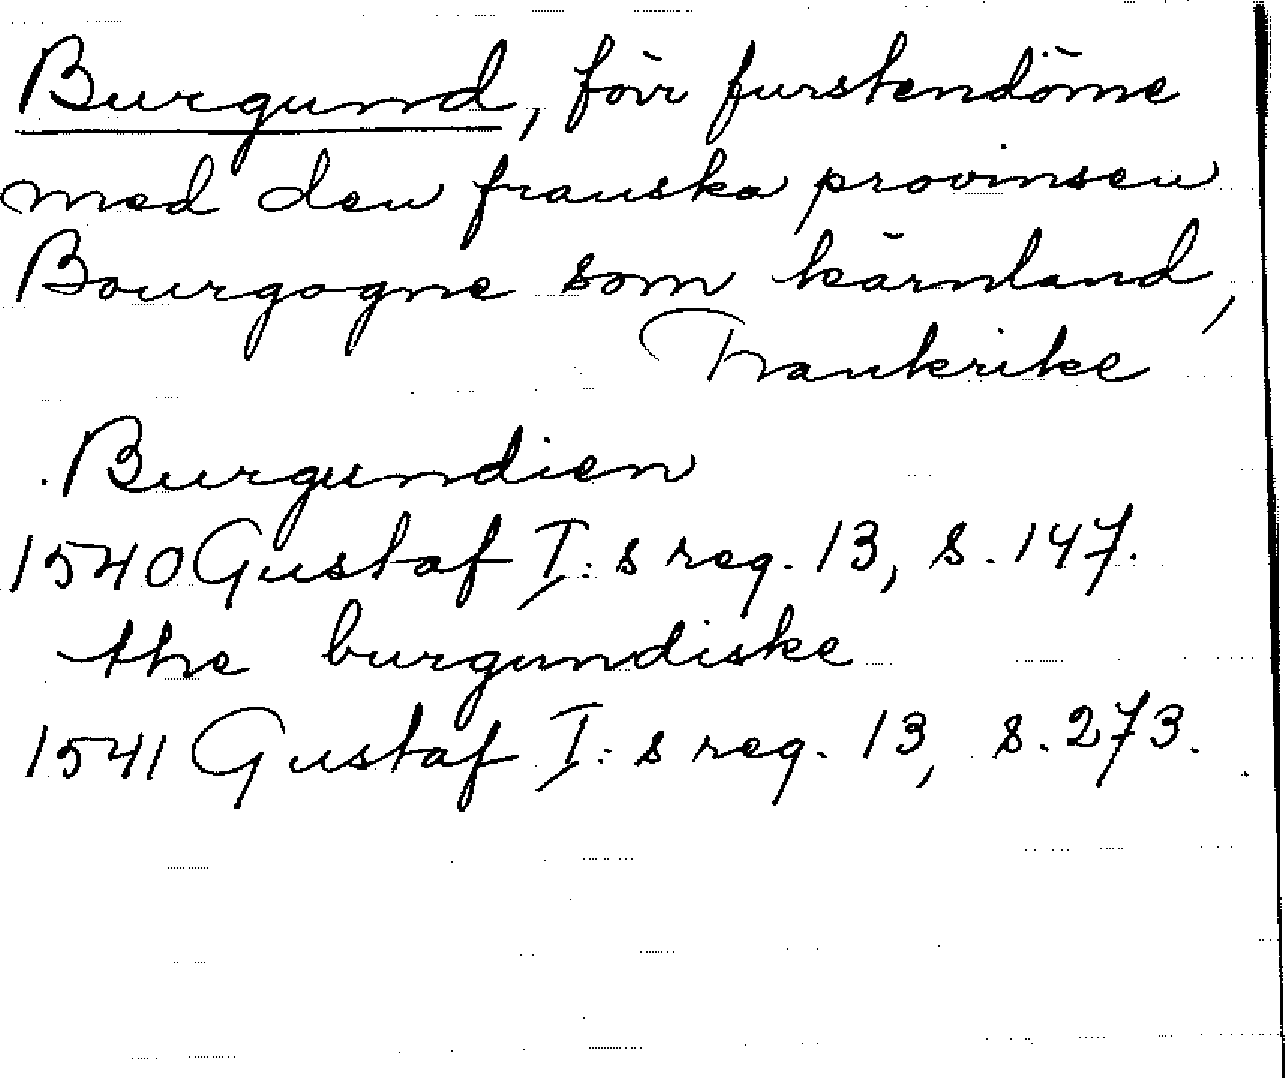 Burgund, förr furstendöme
med den franska provinsen
Bourgogne som kärnland,
Frankrike
Burgundien
1540 Gustaf I:s reg. 13, s. 147.
the burgundiske
1541 Gustaf I:s reg. 13, s. 273.